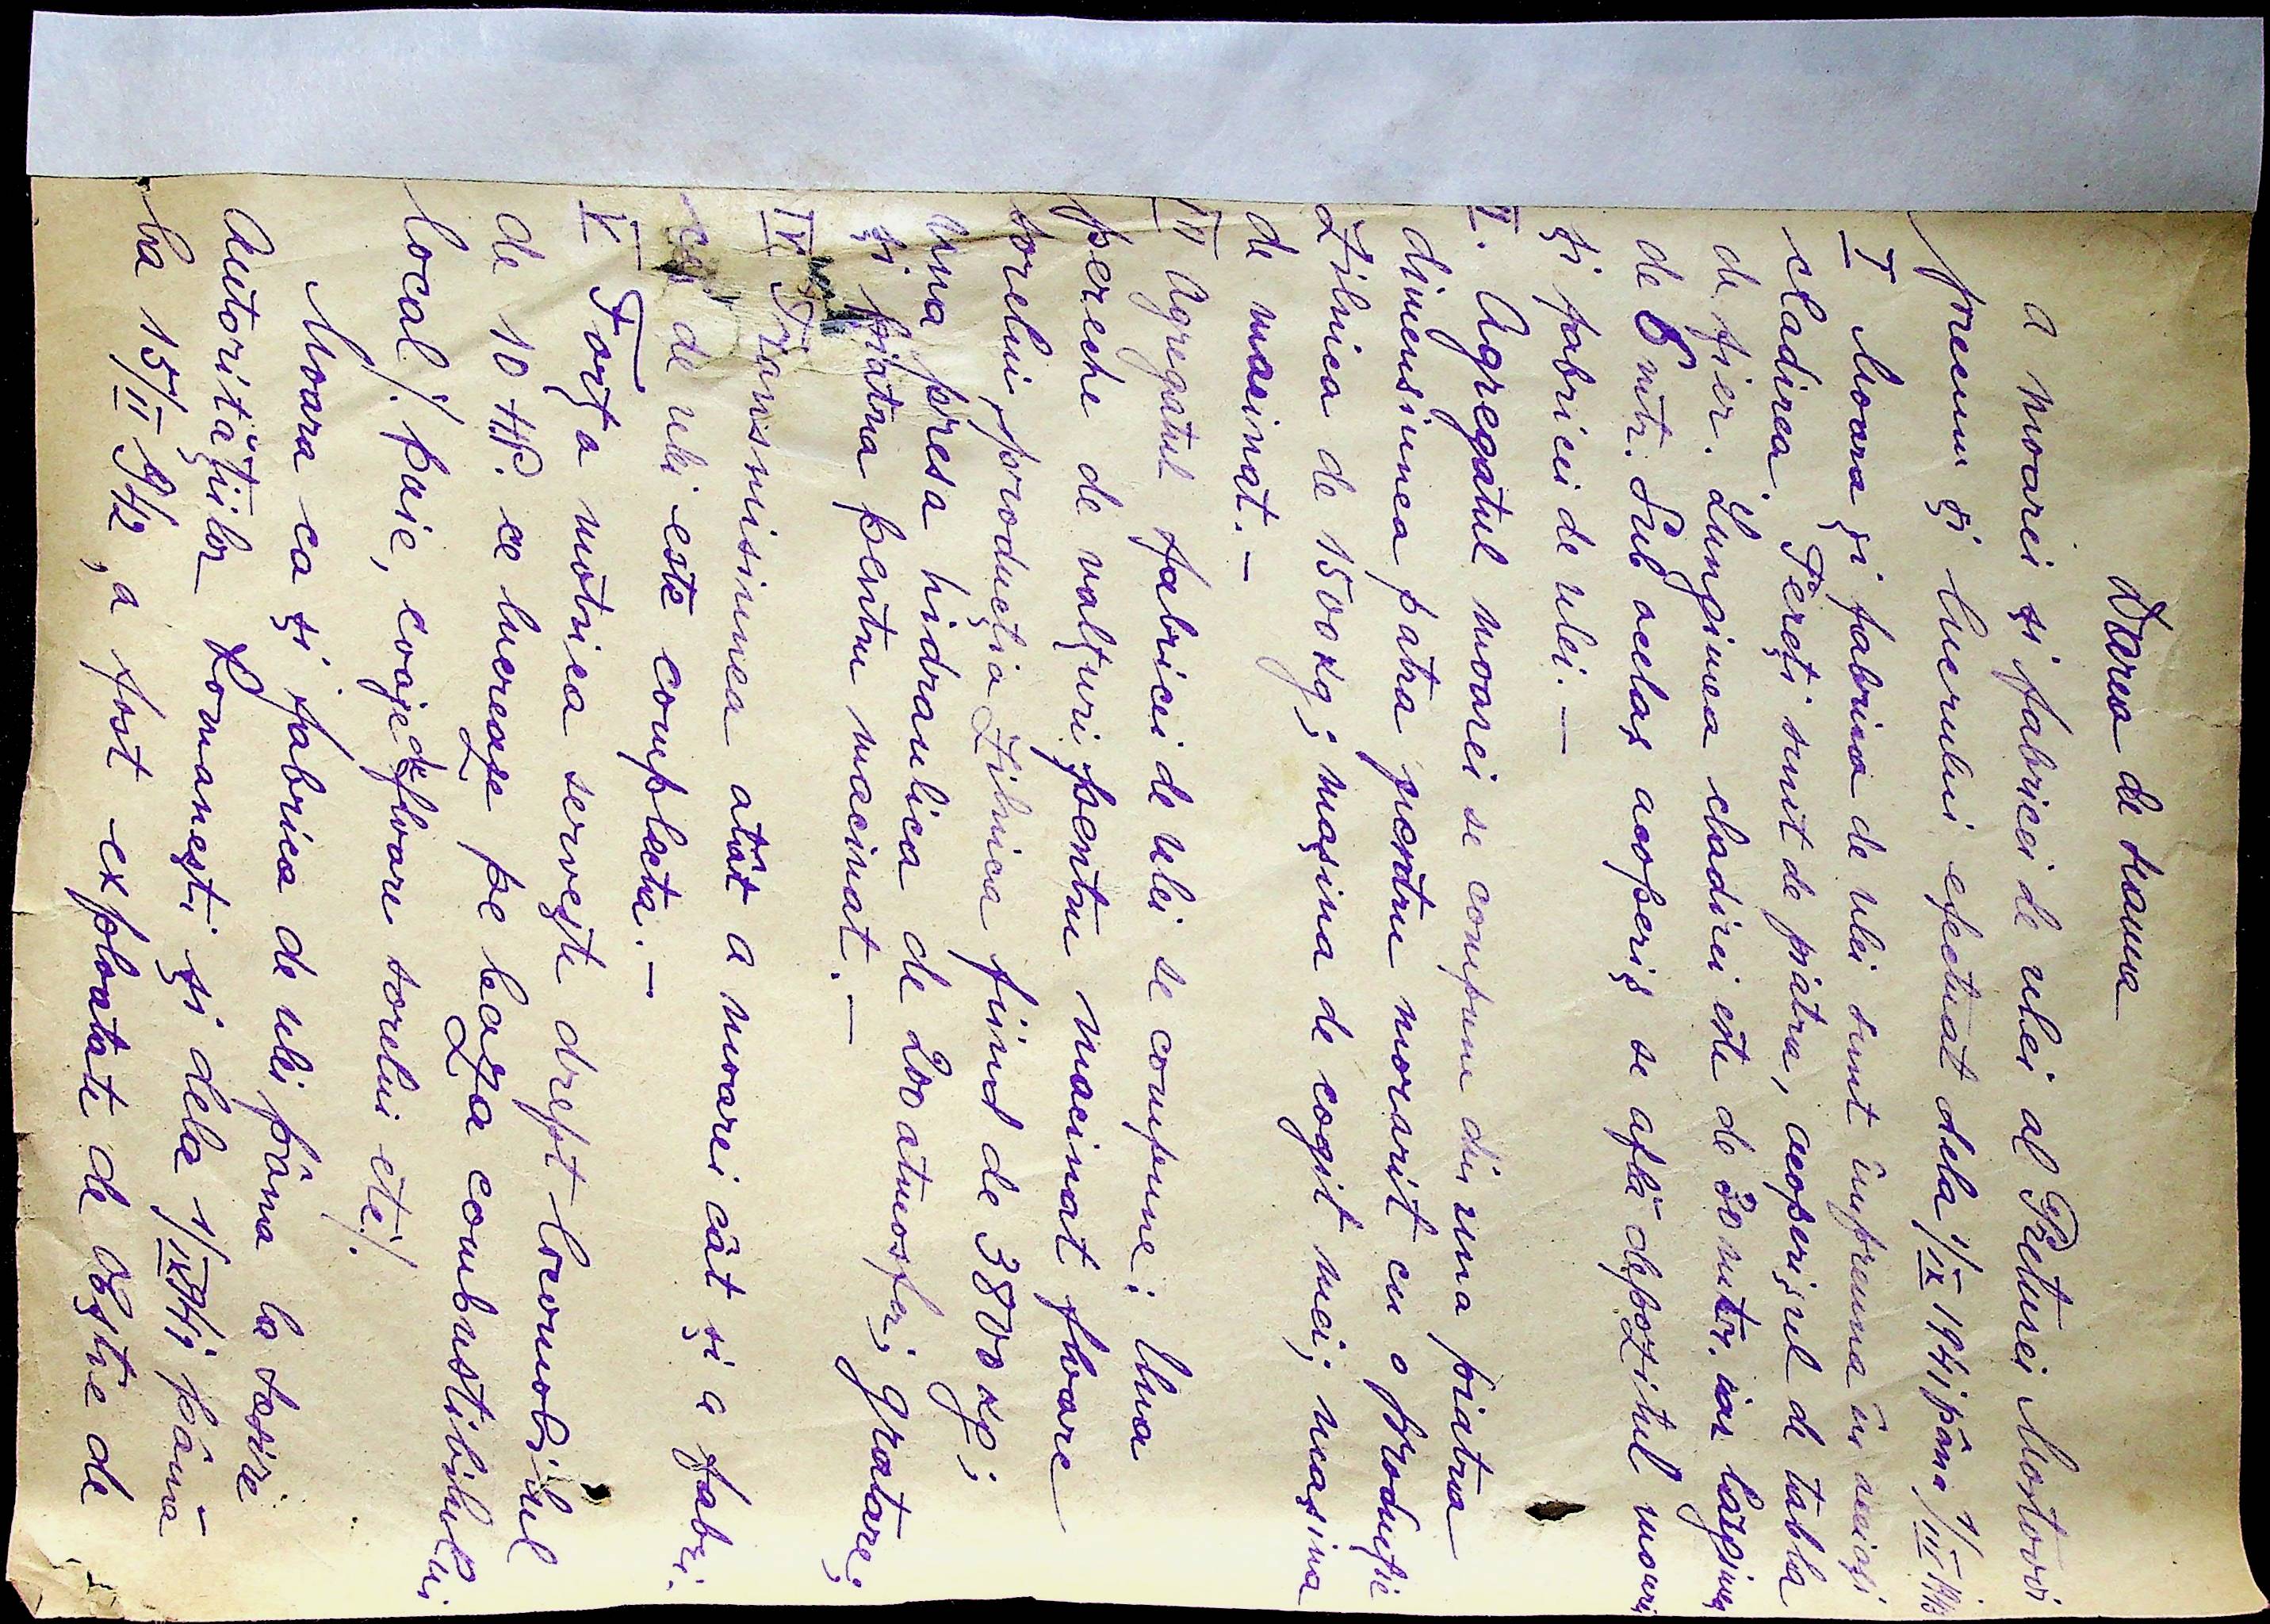 Darea de seama
a moarei și fabricei de ulei al Preturei Mostovoi
precum și lucrului efectuat dela 1/IX 1941 pâna 1/III 1943
I Moara și fabrica de ulei sunt împreuna în aceiași
cladirea. Pereți sunt de piatra, acoperișul de tabla
de fier. Lungimea cladirei este de 30 mtr. iar lățgimea
de 8 mtr. Sub acelaș acoperiș se află depozitul mourii
și fabricii de ulei. —
II. Agregatul moarei se compune din una piatra
dimensiunea patra pentru morarit cu o producție
zilnica de 1500 kg; mașina de cojit mei; mașina
de macinat. —
III Agregatul fabricei de ulei se compune: Una
pereche de valțuri pentru macinat floare
sorelui, producția zilnica fiind de 3800 kg;
una presa hidraulica de 200 atmosfer; gratare;
și piatra pentru macinat. —
IV. Transmisiunea atât a moarei cât și a fabri-
cei de ulei este complecta. —
V Forța motrica servește drept locomobilul
de 10 HP. ce lucrează pe baza combustibilului
local /: paie, coaje de floare sorelui etc/.
Moara ca și fabrica de ulei pâna la sosire
Autorităților Românești și dela 1/IX 941 până
la 15/II 942, a fost exploatate de obștie de